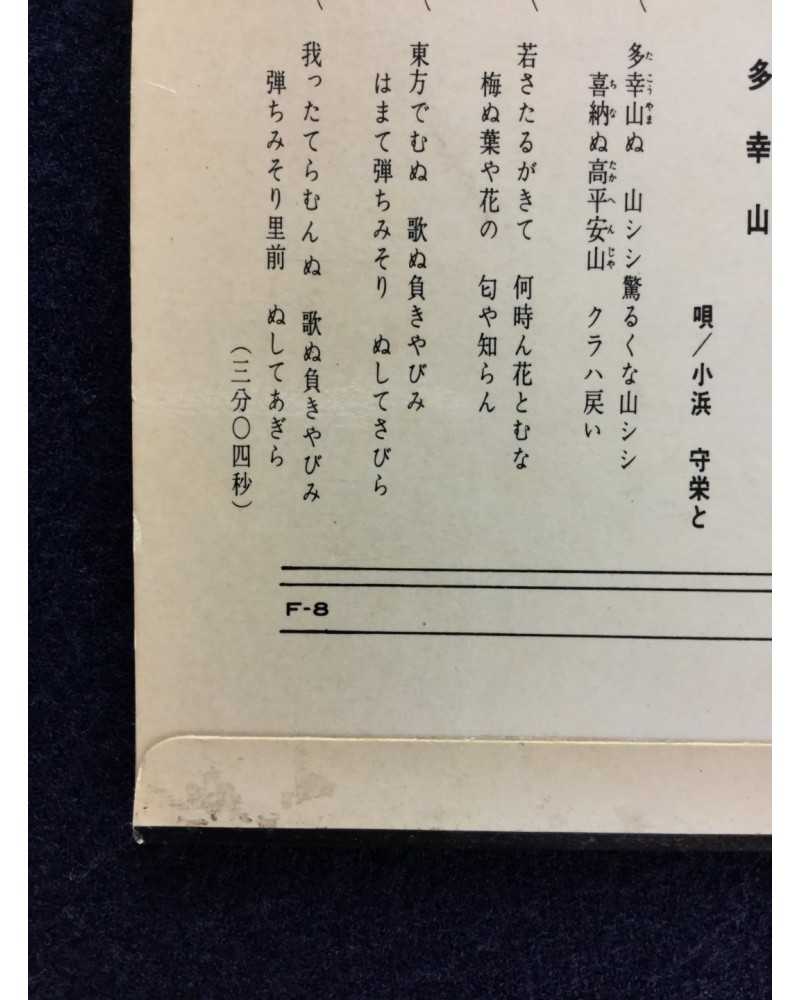 多幸山
唄／小浜 守栄と
多幸山ぬ 山シシ驚るくな山シシ
たこうやま
喜納ぬ高平安山 クラハ戻い
ちな たかへんじや
若さたるがきて 何時ん花とむな
梅ぬ葉や花の 匂や知らん
東方でむぬ 歌ぬ負きやびみ
はまて弾ちみそり ぬしてさびら
我ったてらむんぬ 歌ぬ負きやびみ
弾ちみそり里前 ぬしてあぎら
（三分〇四秒）
F-8